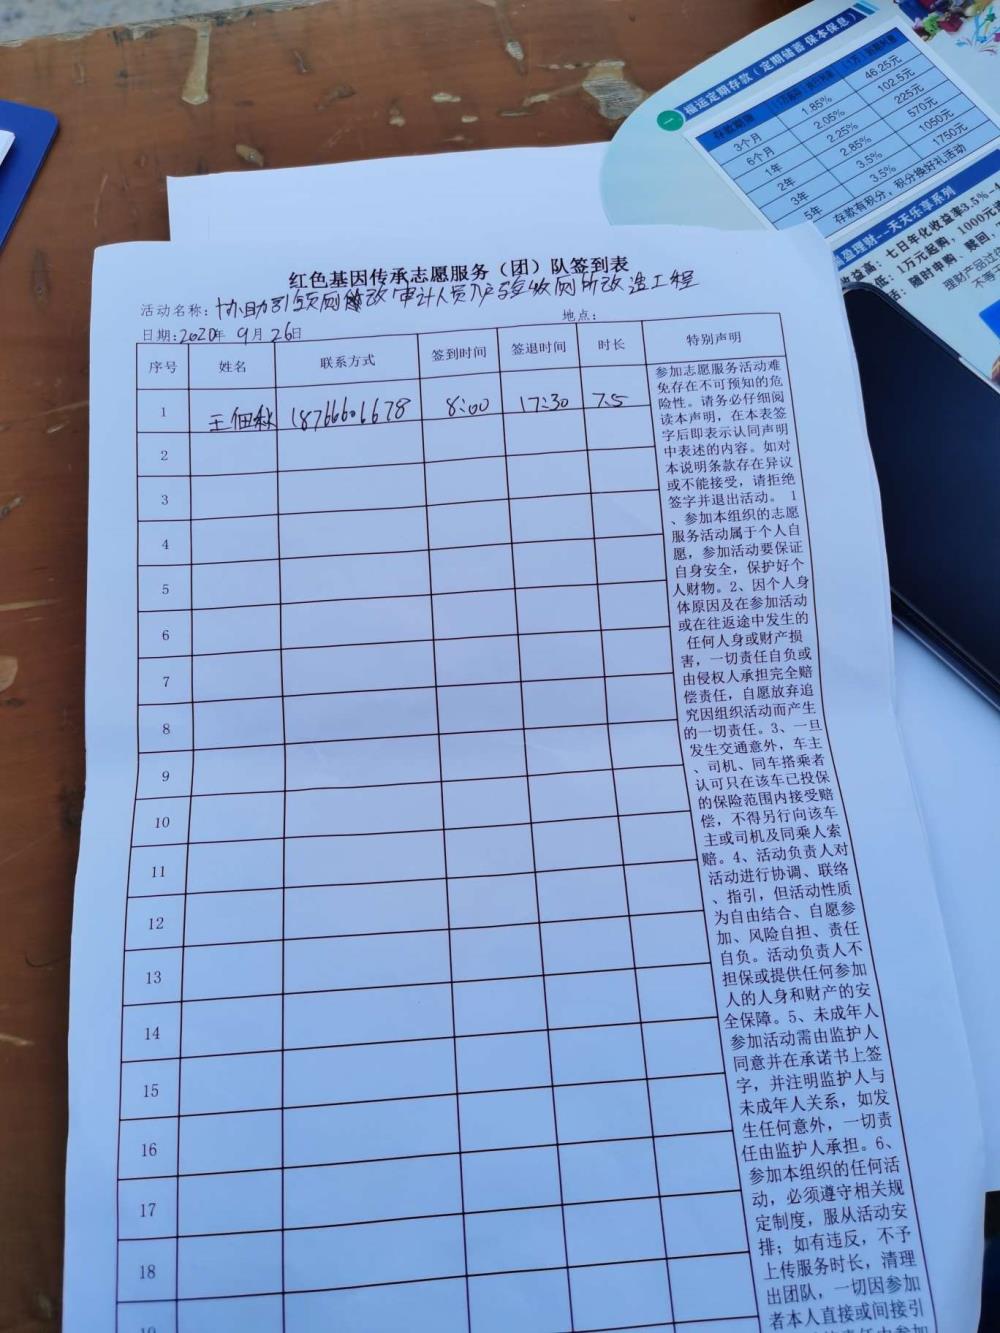 福运定期存款（定期储蓄 保本保息）
一
存款期限
3个月 1.85% 46.25元
6个月 2.05% 102.5元
1年 2.25% 225元
2年 2.85% 570元
3年 3.5% 1050元
5年 3.5% 1750元
存款有积分，积分换好礼活动
盈理财--天天乐享系列
收益高：七日年化收益率3.5%-
低：1万元起购，1000元
活：随时申购、赎回，
理财产品过往
不等
红色基因传承志愿服务（团）队签到表
活动名称：协助引领厕改审计人员入户验收厕所改造工程
日期：2020年 9月 26日 地点：
序号 姓名 联系方式 签到时间 签退时间 时长 特别声明
1 王佃秋 18766606678 8:00 17:30 7.5
2
3
4
5
6
7
8
9
10
11
12
13
14
15
16
17
18
19
参加志愿服务活动难
免存在不可预知的危
险性。请务必仔细阅
读本声明，在本表签
字后即表示认同声明
中表述的内容。如对
本说明条款存在异议
或不能接受，请拒绝
签字并退出活动。 1
、参加本组织的志愿
服务活动属于个人自
愿，参加活动要保证
自身安全，保护好个
人财物。2、因个人身
体原因及在参加活动
或在往返途中发生的
任何人身或财产损
害，一切责任自负或
由侵权人承担完全赔
偿责任，自愿放弃追
究因组织活动而产生
的一切责任。3、一旦
发生交通意外，车主
、司机、同车搭乘者
认可只在该车已投保
的保险范围内接受赔
偿，不得另行向该车
主或司机及同乘人索
赔。4、活动负责人对
活动进行协调、联络
、指引，但活动性质
为自由结合、自愿参
加、风险自担、责任
自负。活动负责人不
担保或提供任何参加
人的人身和财产的安
全保障。5、未成年人
参加活动需由监护人
同意并在承诺书上签
字，并注明监护人与
未成年人关系，如发
生任何意外，一切责
任由监护人承担。6、
参加本组织的任何活
动，必须遵守相关规
定制度，服从活动安
排；如有违反，不予
上传服务时长，清理
出团队，一切因参加
者本人直接或间接引